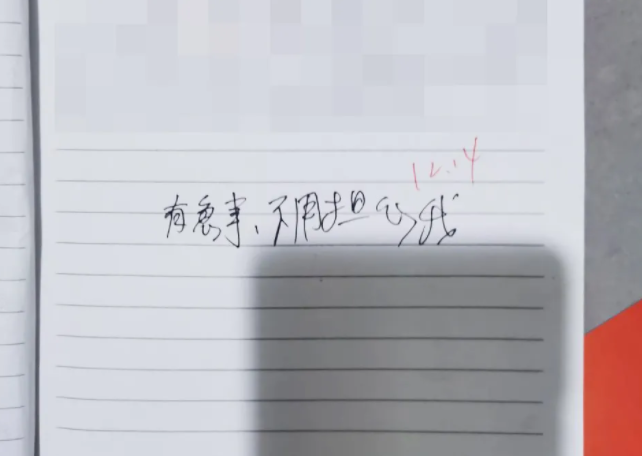 12.14
有急事、不用担心我